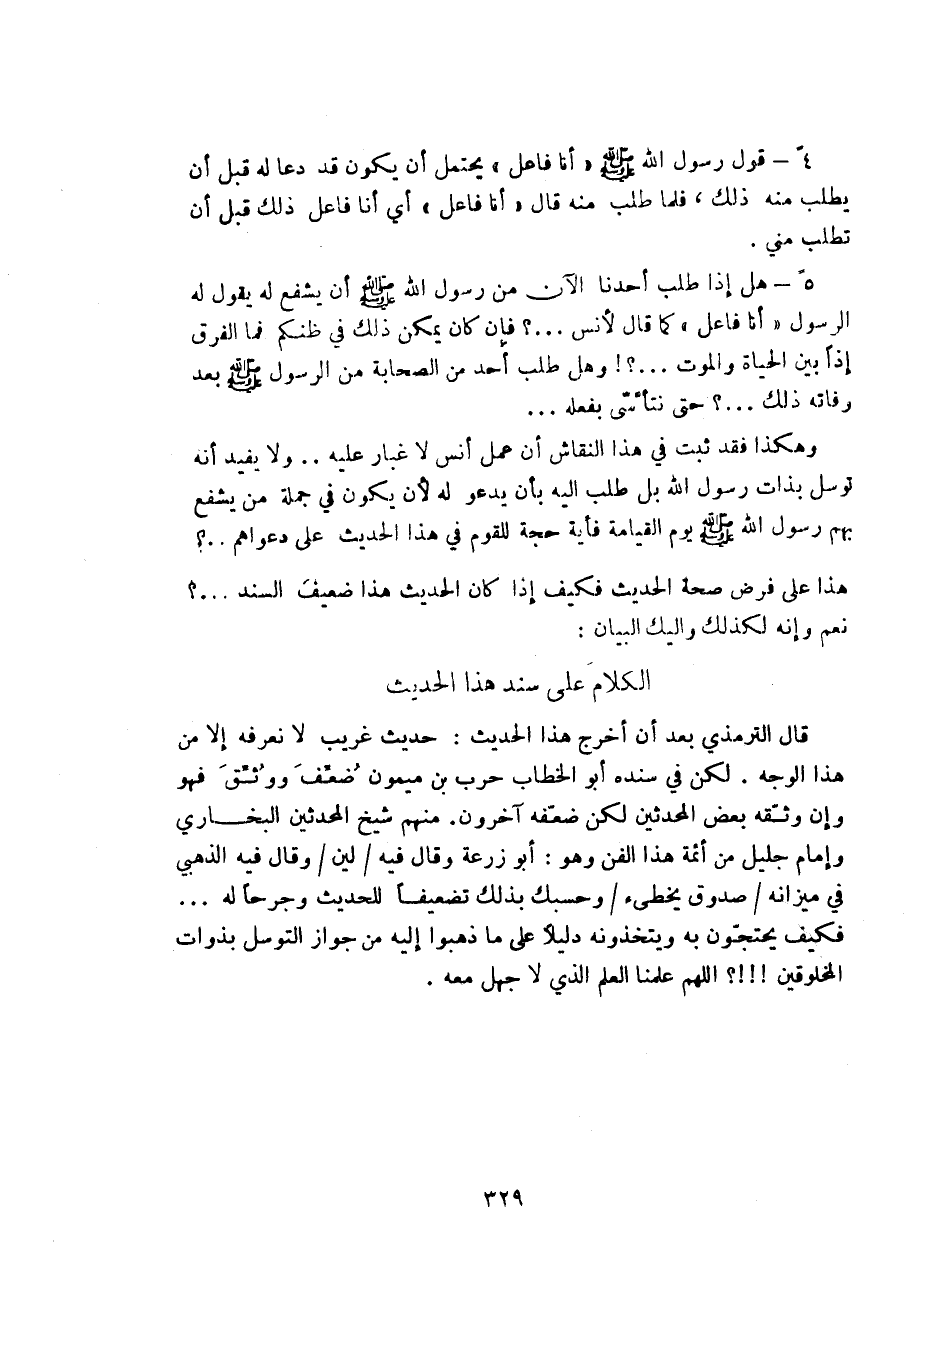 ٤ً – قول رسول الله ﷺ « أنا فاعل » يحتمل أن يكون قد دعا له قبل أن
يطلب منه ذلك ، فلما طلب منه قال « أنا فاعل » أي أنا فاعل ذلك قبل أن
تطلب مني .
٥ً – هل إذا طلب أحدنا الآن من رسول الله ﷺ أن يشفع له يقول له
الرسول « أنا فاعل » كما قال لأنس ...؟ فإن كان يمكن ذلك في ظنكم فما الفرق
إذاً بين الحياة والموت ...؟! وهل طلب أحد من الصحابة من الرسول ﷺ بعد
وفاته ذلك ...؟ حتى نتأسّى بفعله ...
وهكذا فقد ثبت في هذا النقاش أن عمل أنس لا غبار عليه .. ولا يفيد أنه
توسل بذات رسول الله بل طلب اليه بأن يدعو له لأن يكون في جملة من يشفع
بهم رسول الله ﷺ يوم القيامة فأية حجة للقوم في هذا الحديث على دعواهم ..؟
هذا على فرض صحة الحديث فكيف إذا كان الحديث هذا ضعيفَ السند ...؟
نعم وإنه لكذلك واليك البيان :
الكلامَ على سند هذا الحديث
قال الترمذي بعد أن أخرج هذا الحديث : حديث غريب لا نعرفه إلا من
هذا الوجه . لكن في سنده أبو الخطاب حرب بن ميمون ضُعّفَ ووُثّقَ فهو
وإن وثّقه بعض المحدثين لكن ضعّفه آخرون. منهم شيخ المحدثين البخـــاري
وإمام جليل من أئمة هذا الفن وهو : أبو زرعة وقال فيه /لين/ وقال فيه الذهبي
في ميزانه / صدوق يخطىء / وحسبك بذلك تضعيفـاً للحديث وجرحاً له ...
فكيف يحتجّون به ويتخذونه دليلاً على ما ذهبوا إليه من جواز التوسل بذوات
المخلوقين !!!؟ اللهم علمنا العلم الذي لا جهل معه .
٣٢٩